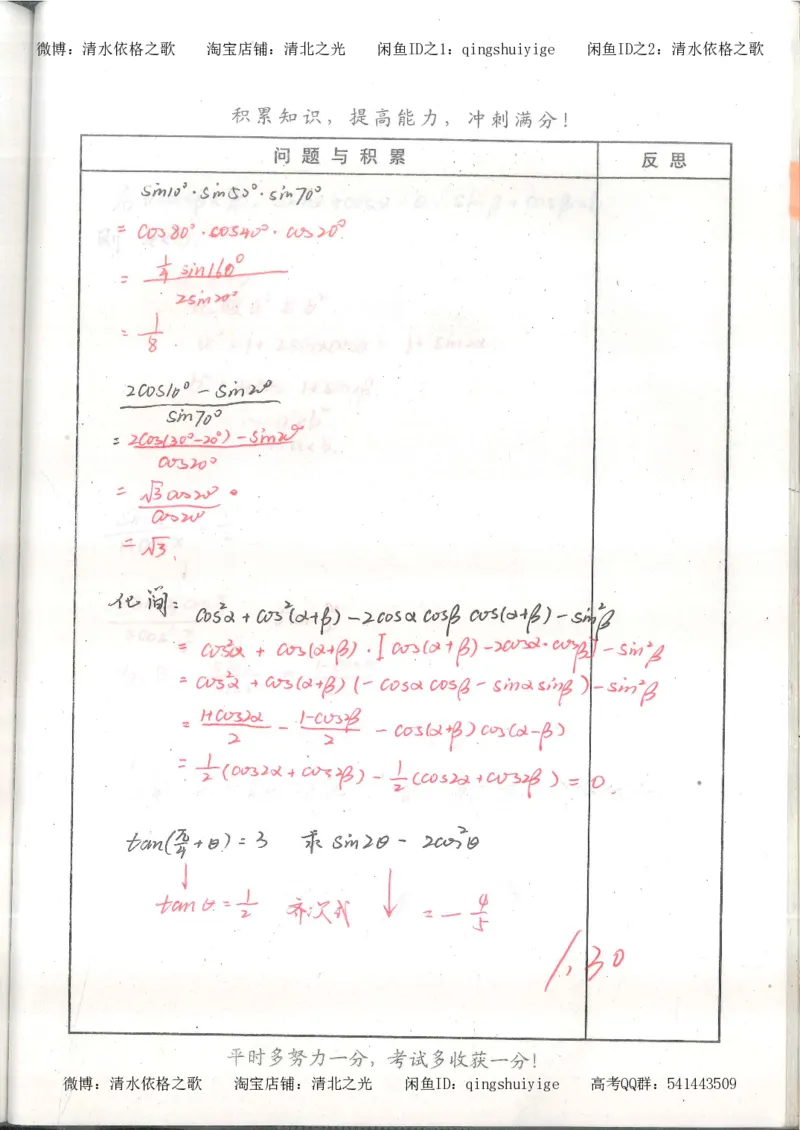 微博：清水依格之歌 淘宝店铺：清北之光 闲鱼ID之1：qingshuiyige 闲鱼ID之2：清水依格之歌
积累知识，提高能力，冲刺满分！
问题与积累 反思
sin10°·sin50°·sin70°
= cos80°·cos40°·cos20°
= (1/4 sin160°)/(2sin20°)
= 1/8.
(2cos10° - sin20°)/sin70°
= (2cos(30°-20°) - sin20°)/cos20°
= √3cos20°/cos20°
= √3.
化简: cos²α + cos²(α+β) - 2cosα cosβ cos(α+β) - sin²β
= cos²α + cos(α+β)·[cos(α+β) - 2cosα·cosβ] - sin²β
= cos²α + cos(α+β)(-cosαcosβ - sinαsinβ) - sin²β
= (1+cos2α)/2 - (1-cos2β)/2 - cos(α+β)cos(α-β)
= 1/2(cos2α + cos2β) - 1/2(cos2α + cos2β) = 0.
tan(π/4+θ) = 3 求 sin2θ - 2cos²θ
↓
tanθ = 1/2 齐次式 ↓ = -4/5
1.30
平时多努力一分，考试多收获一分！
微博：清水依格之歌 淘宝店铺：清北之光 闲鱼ID：qingshuiyige 高考QQ群：541443509